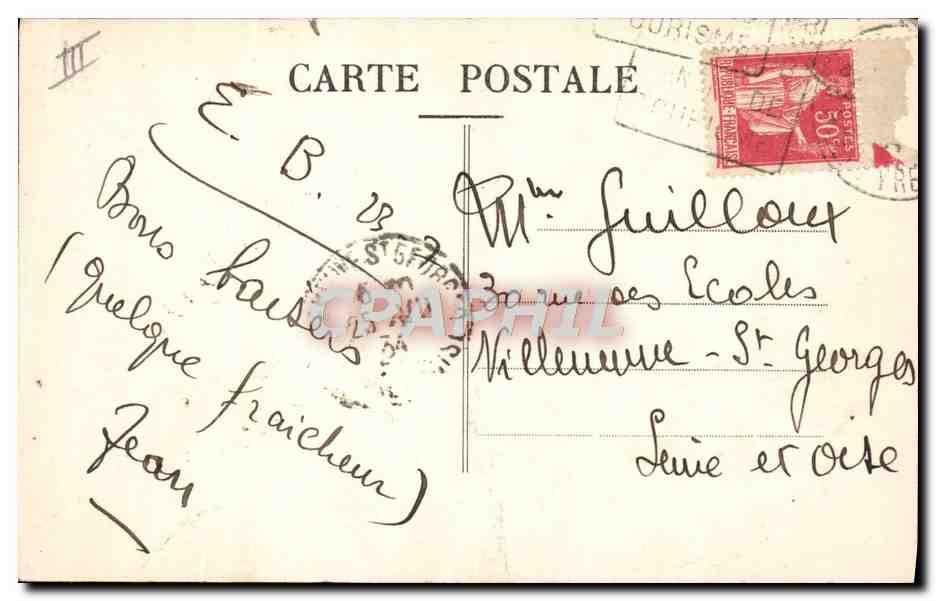 III
CARTE POSTALE
TOURISME
DE
REPUBLIQUE FRANCAISE
POSTES
50c
E. B. 23 7
Bons baisers
(Quelque fraicheur)
Jean
VILLENEUVE ST GEORGES
23
34
Mme Guilloux
30 rue des Ecoles
Villeneuve - St Georges
Seine et Oise
CPAPHIL